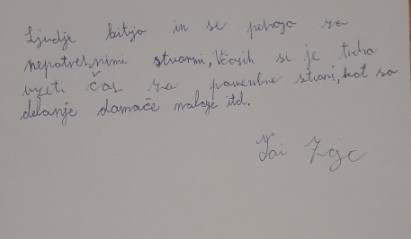 Ljudje hitijo in se ženejo za
nepotrebnimi stvarmi, včasih si je treba
vzeti čas za pomembne stvari, kot so
delanje domače naloge itd.